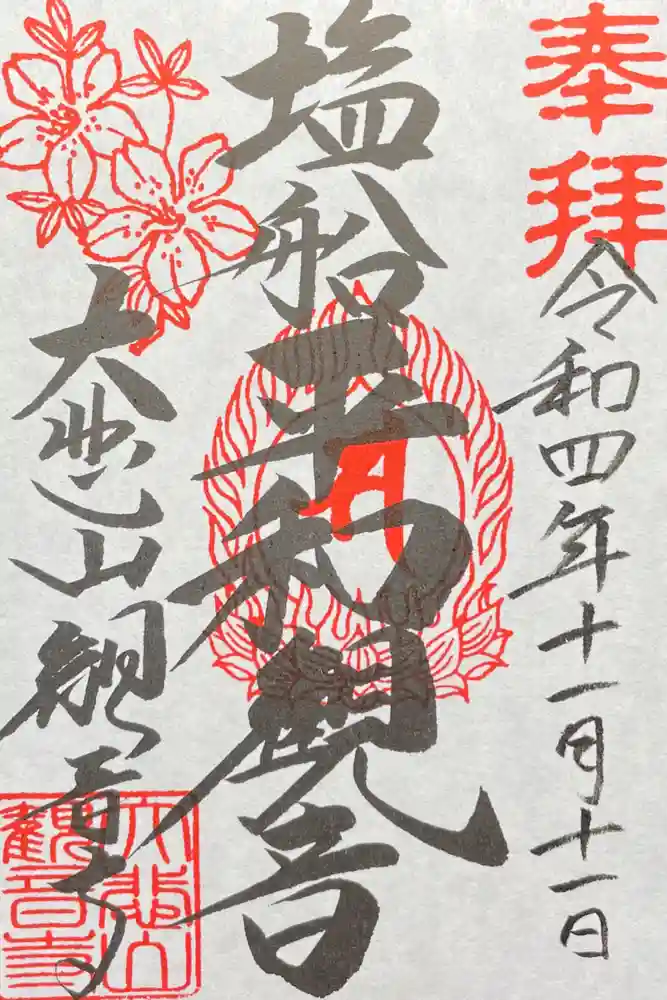 奉拝
令和四年十一月十一日
塩船平和觀音
大悲山観音寺
大悲山
観音寺